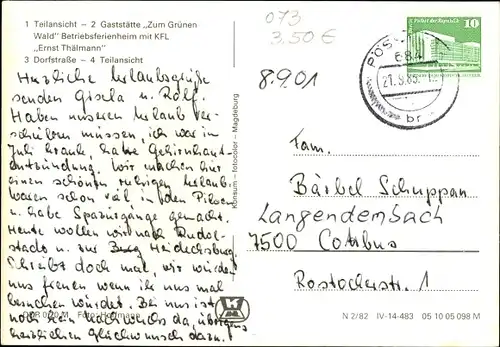 1 Teilansicht – 2 Gaststätte „Zum Grünen
Wald" Betriebsferienheim mit KFL
„Ernst Thälmann"
3 Dorfstraße – 4 Teilansicht
073
3,50 €
8.9.01
Palast der Republik
10
PÖS
684
21.9.85
br
Herzliche Urlaubsgrüße
senden Gisela u. Rolf.
Haben unseren Urlaub ver-
schieben müssen, ich war in
Juli krank, hatte Gehirnhaut-
entzündung. Wir machen hier
einen schönen ruhigen Urlaub
waren schon viel in den Pilzen
u. habe Spaziergänge gemacht.
Heute wollen wir nach Rudol-
stadt u. zur Burg Heidecksburg.
Schreibt doch mal, wir würden
uns freuen wenn ihr uns mal
besuchen würdet. Bei uns ist
noch kein Nachwuchs da, übrigens
herzlichen Glückwunsch dazu!
Fam.
Bärbel Schuppan
Langendembach
7500 Cottbus
Rostockerstr. 1
Konsum - fotocolor - Magdeburg
DDR 0,20 M Foto: Hoffmann
N 2/82 IV-14-483 05 10 05 098 M